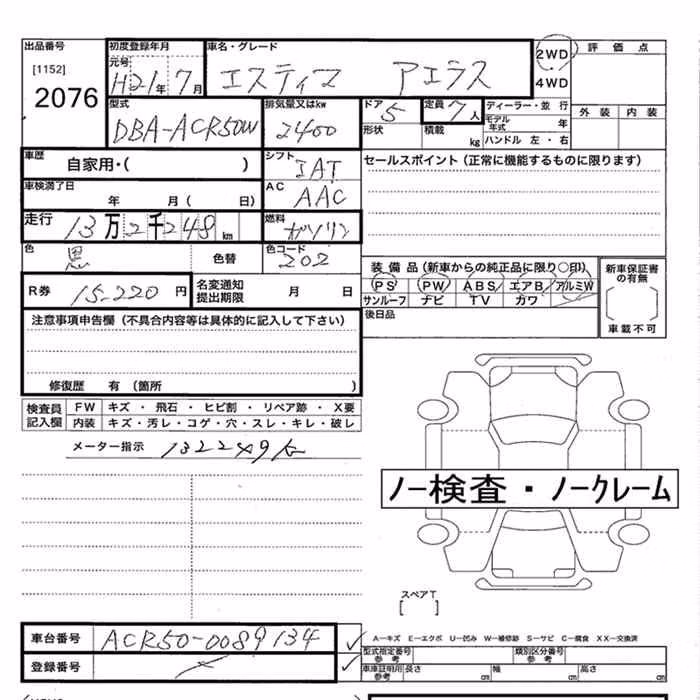 出品番号 初度登録年月 車名・グレード 2WD 評価点
[1152] 元号 H21年7月 エスティマ アエラス 4WD
2076
型式 排気量又はkw ドア 5 定員 7人 ディーラー・並行 外装 内装
DBA-ACR50W 2400 形状 積載 kg モデル年式 年
ハンドル 左・右
車歴 自家用・( ) シフト IAT セールスポイント(正常に機能するものに限ります)
車検満了日 年 月( 日) AC AAC
走行 13万2千248km 燃料 ガソリン
色 黒 色替 色コード 202
装備品(新車からの純正品に限り○印) 新車保証書の有無
R券 15,220円 名変通知提出期限 月 日
PS PW ABS エアB アルミW
サンルーフ ナビ TV カワ
車載不可
注意事項申告欄(不具合内容等は具体的に記入して下さい) 後日品
修復歴 有(箇所 )
検査員記入欄 FW キズ・飛石・ヒビ割・リペア跡・X要
内装 キズ・汚レ・コゲ・穴・スレ・キレ・破レ
メーター指示
ノー検査・ノークレーム
スペアT
[ ]
車台番号 ACR50-0089134
A−キズ E−エクボ U−凹み W−補修跡 S−サビ C−腐食 XX−交換済
登録番号
型式指定番号 参考 類別区分番号 参考
車庫証明用 参考 長さ cm 幅 cm 高さ cm